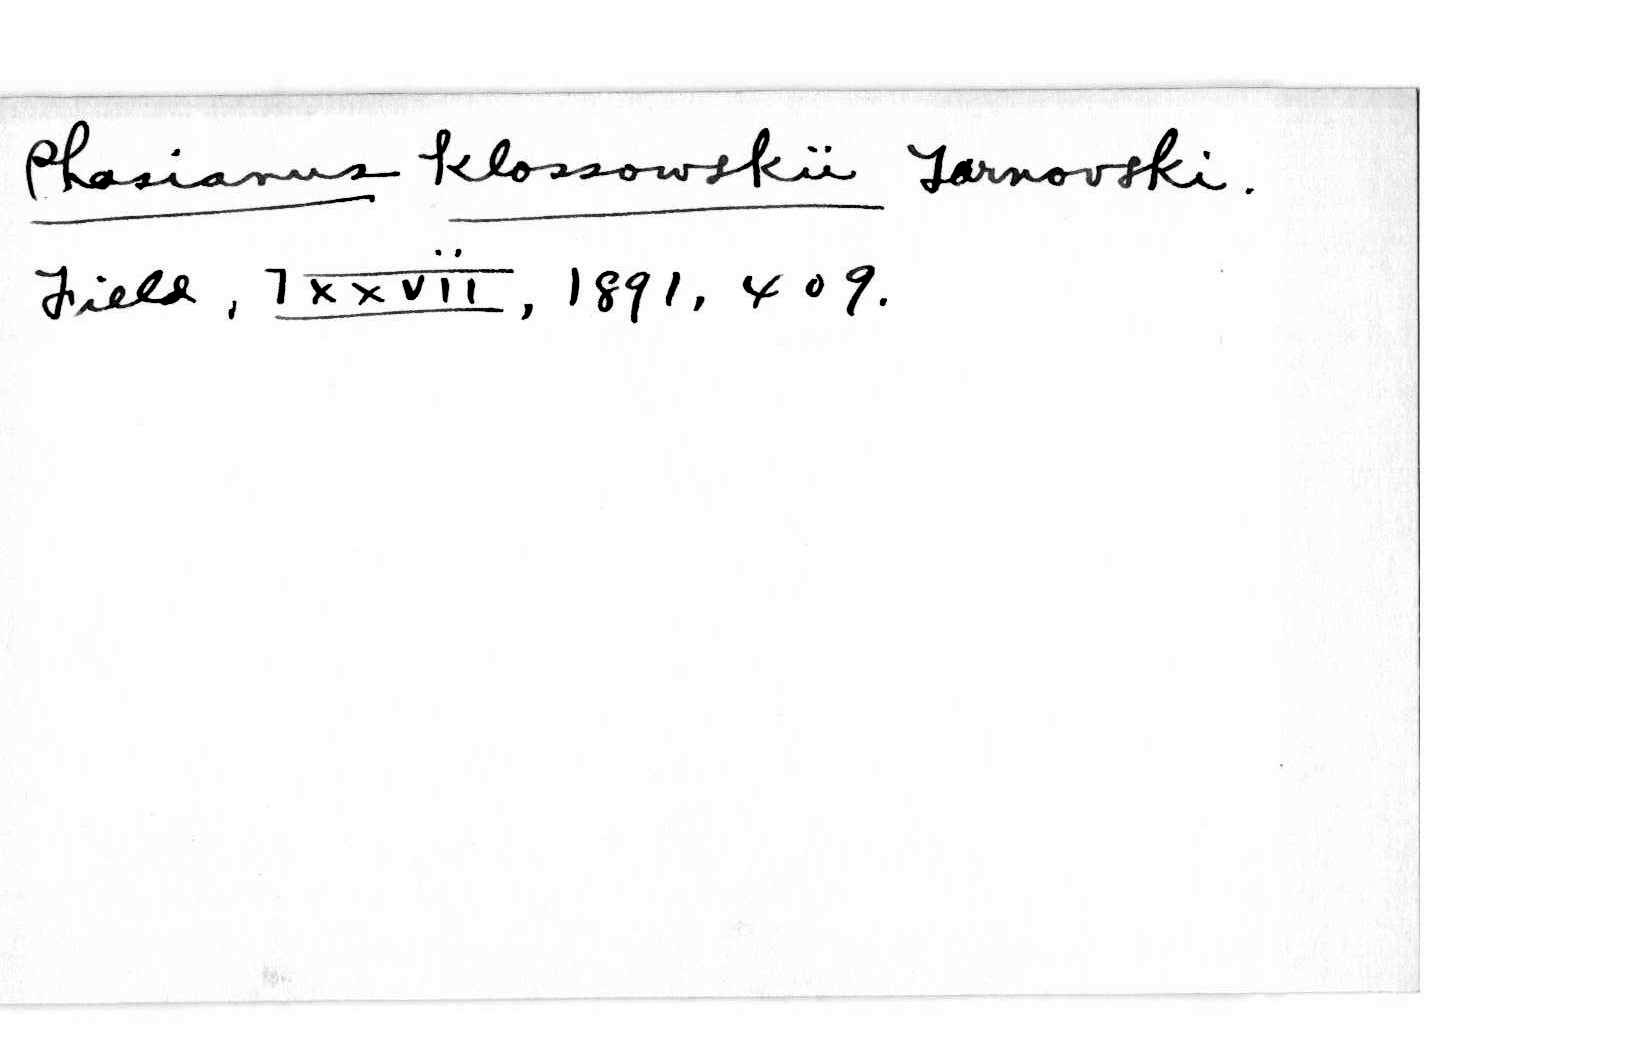 Phasianus klossowskii Tarnovski.
Field, lxxvii, 1891, 409.